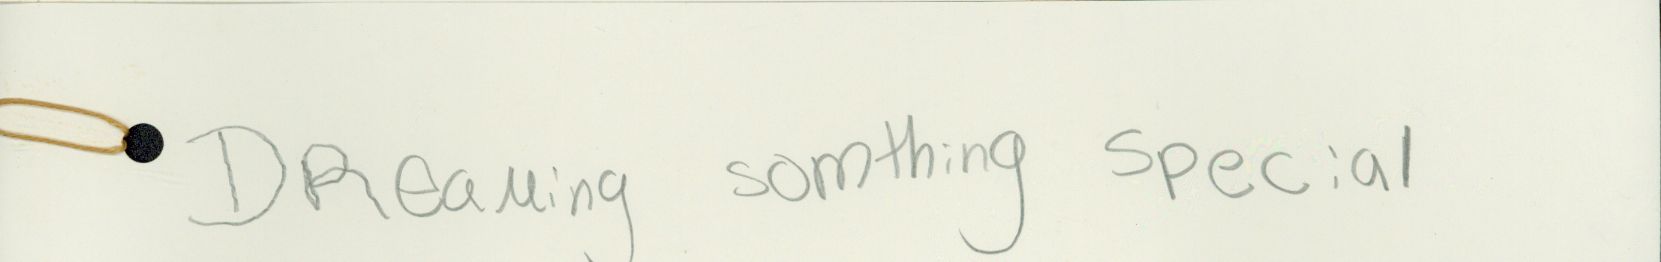 DReaMing somthing special